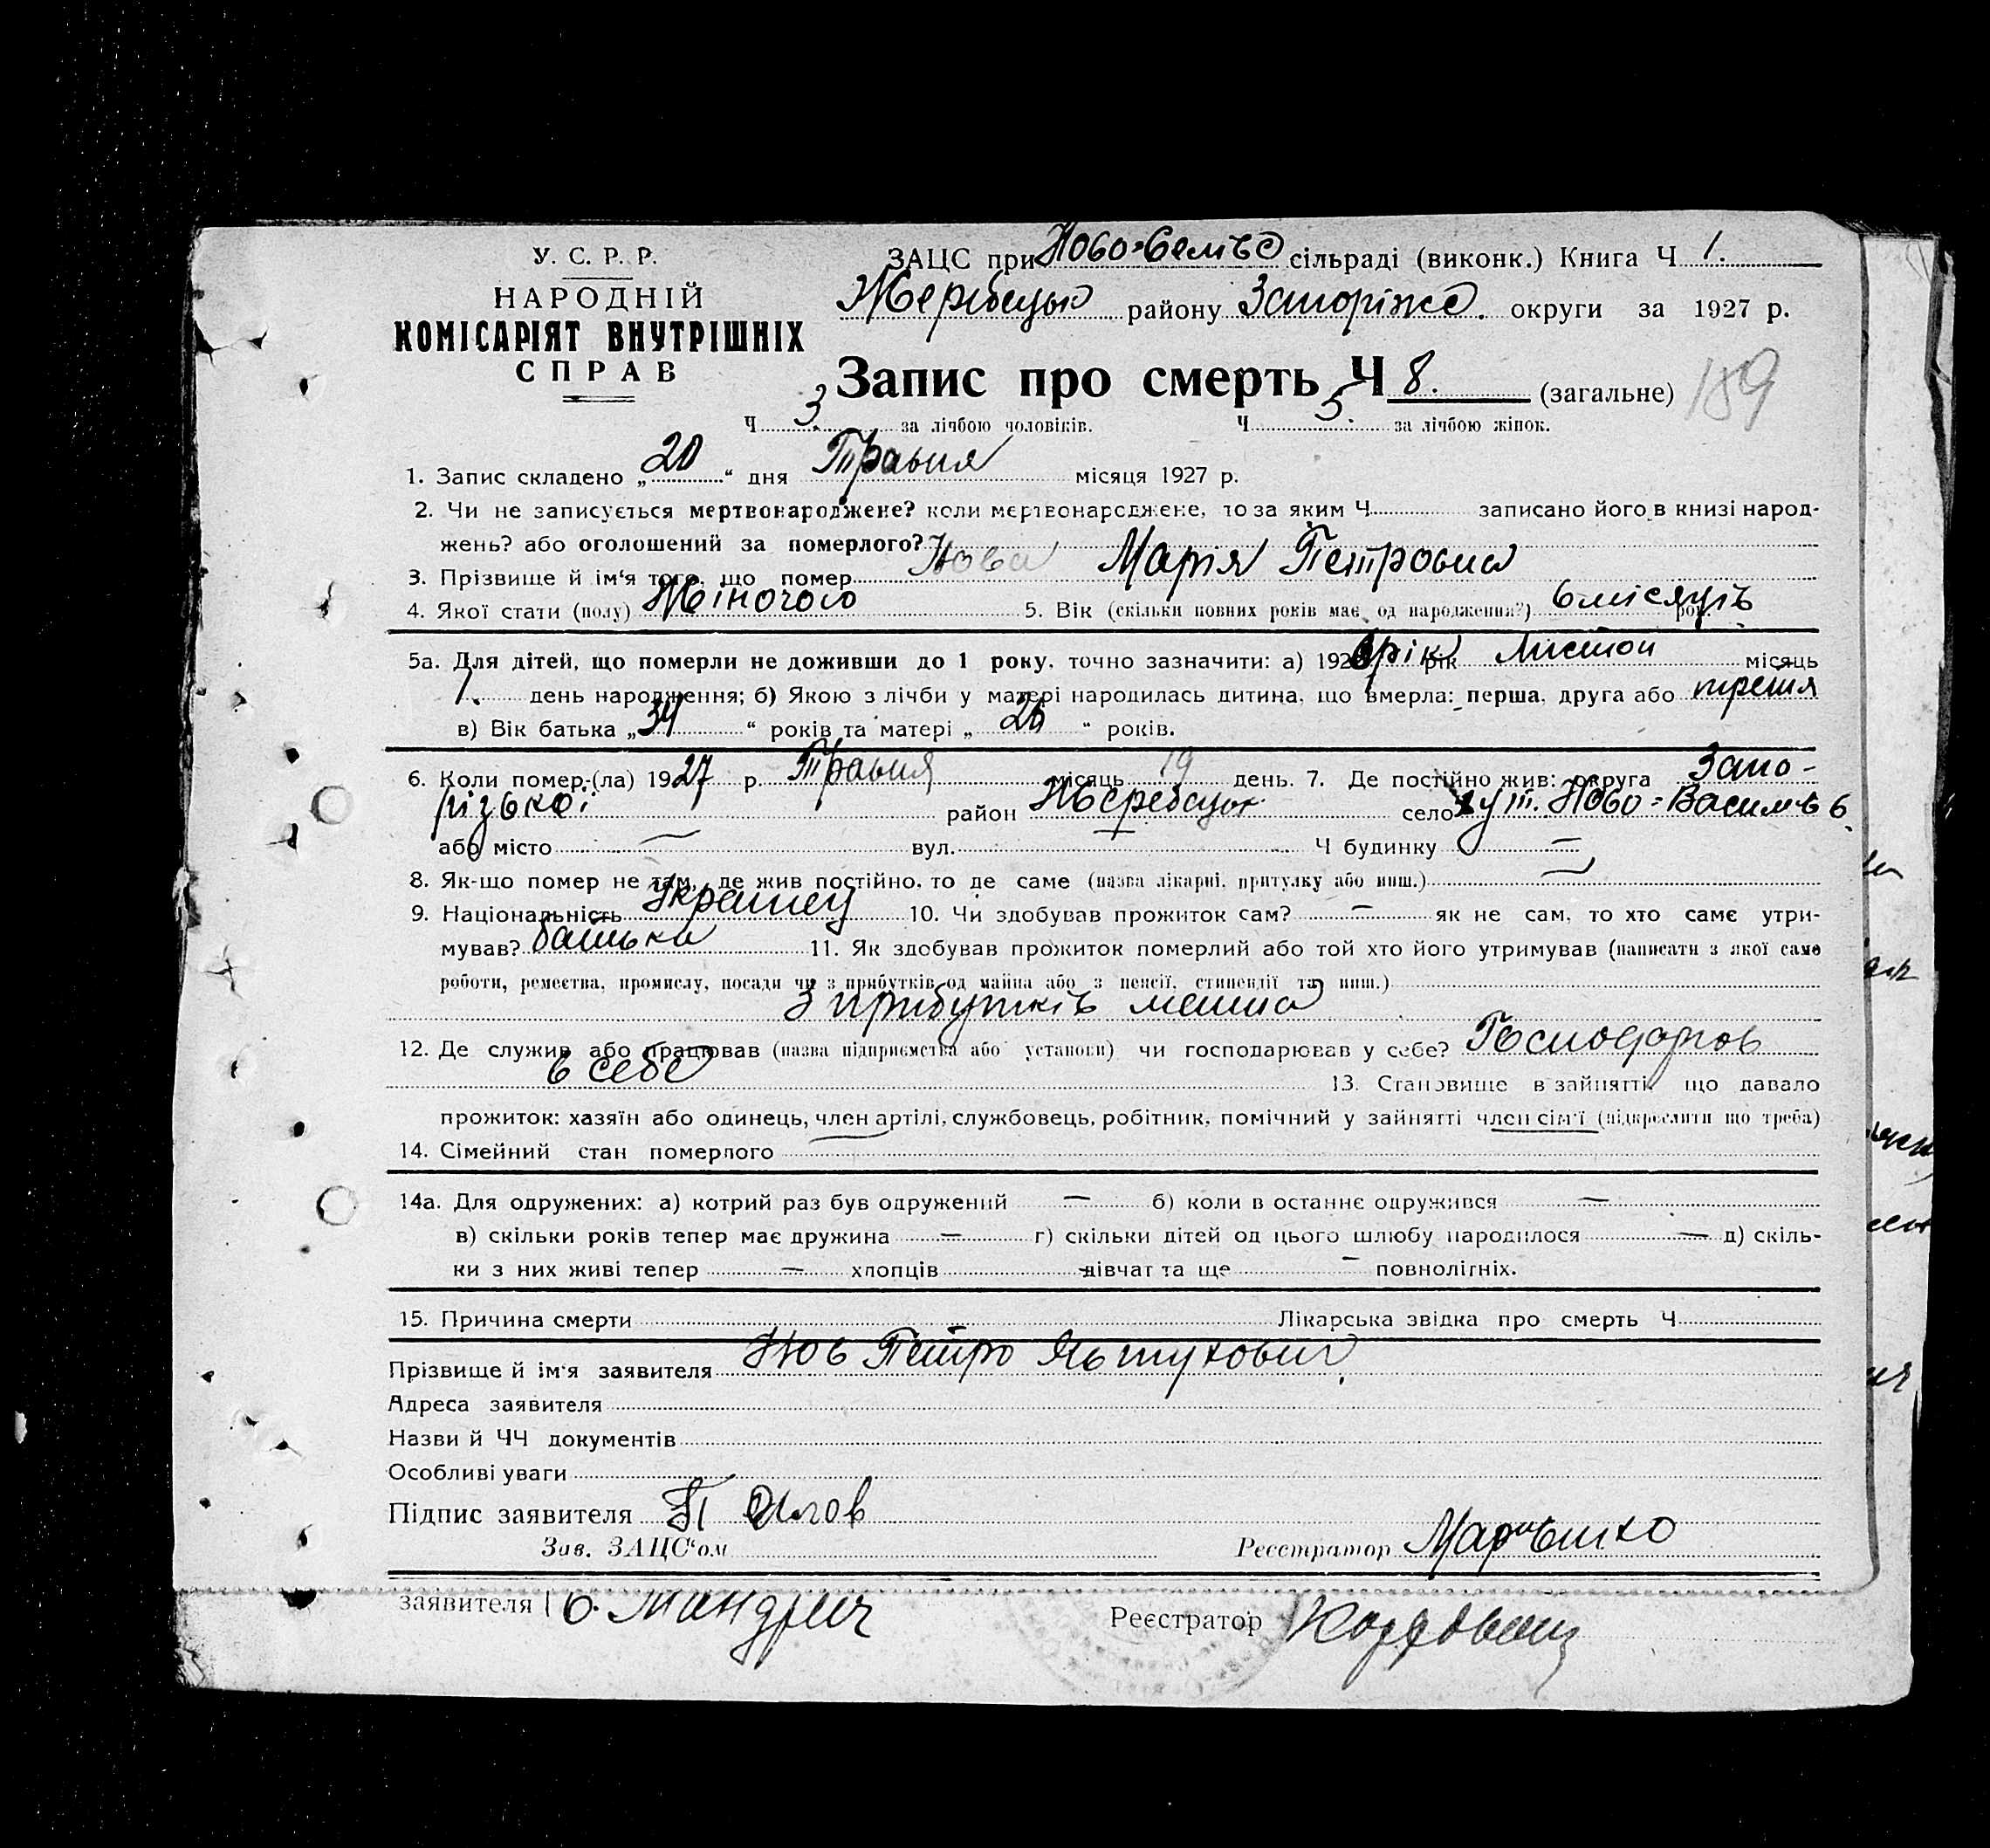 У. С. Р. Р.
НАРОДНІЙ
КОМІСАРІЯТ ВНУТРІШНІХ
СПРАВ
ЗАЦС при сільраді (виконк.) Книга Ч 1.
Жеребецьк району Запоріже. округи за 1927 р.
Запис про смерть Ч 8. (загальне) 189
Ч 3. за лічбою чоловіків. Ч 5. за лічбою жінок.
1. Запис складено „20“ дня Травня місяця 1927 р.
2. Чи не записується мертвонароджене? коли мертвонароджене, то за яким Ч записано його в книзі народ-
жень? або оголошений за померлого?
3. Прізвище й ім‘я того, що помер Марія Петровна
4. Якої стати (полу) Жіночого 5. Вік (скільки повних років має од народження?) 6 місяців рок.
5а. Для дітей, що померли не доживши до 1 року, точно зазначити: а) 1926 рік рік Листоп місяць
1. день народження; б) Якою з лічби у матері народилась дитина, що вмерла: перша, друга або третя
в) Вік батька „34“ років та матері „26“ років.
6. Коли помер-(ла) 1927 р. Травня місяць 19 день. 7. Де постійно жив: округа Запо-
різької район Жеребецьк село хут. Ново-Василь в.
або місто — вул. Ч будинку —
8. Як-що помер не там, де жив постійно, то де саме (назва лікарні, притулку або инш.) —
9. Національність Українец 10. Чи здобував прожиток сам? — як не сам, то хто саме утри-
мував? батько 11. Як здобував прожиток померлий або той хто його утримував (написати з якої саме
роботи, ремества, промислу, посади чи з прибутків од майна або з пенсії, стипендії та инш.)
З прибутків маина
12. Де служив або працював (назва підприємства або установи) чи господарював у себе? Господарюв
в себе 13. Становище в зайнятті, що давало
прожиток: хазяїн або одинець, член артілі, службовець, робітник, помічний у зайнятті член сім‘ї (підкреслити що треба)
14. Сімейний стан померлого
14а. Для одружених: а) котрий раз був одружений — б) коли в останнє одружився —
в) скільки років тепер має дружина — г) скільки дітей од цього шлюбу народилося — д) скіль-
ки з них живі тепер — хлопців — дівчат та ще — повнолітніх.
15. Причина смерти Лікарська звідка про смерть Ч
Прізвище й ім‘я заявителя Петро
Адреса заявителя
Назви й ЧЧ документів
Особливі уваги
Підпис заявителя П
Зав. ЗАЦС‘ом Реєстратор Марченко
заявителя Реєстратор